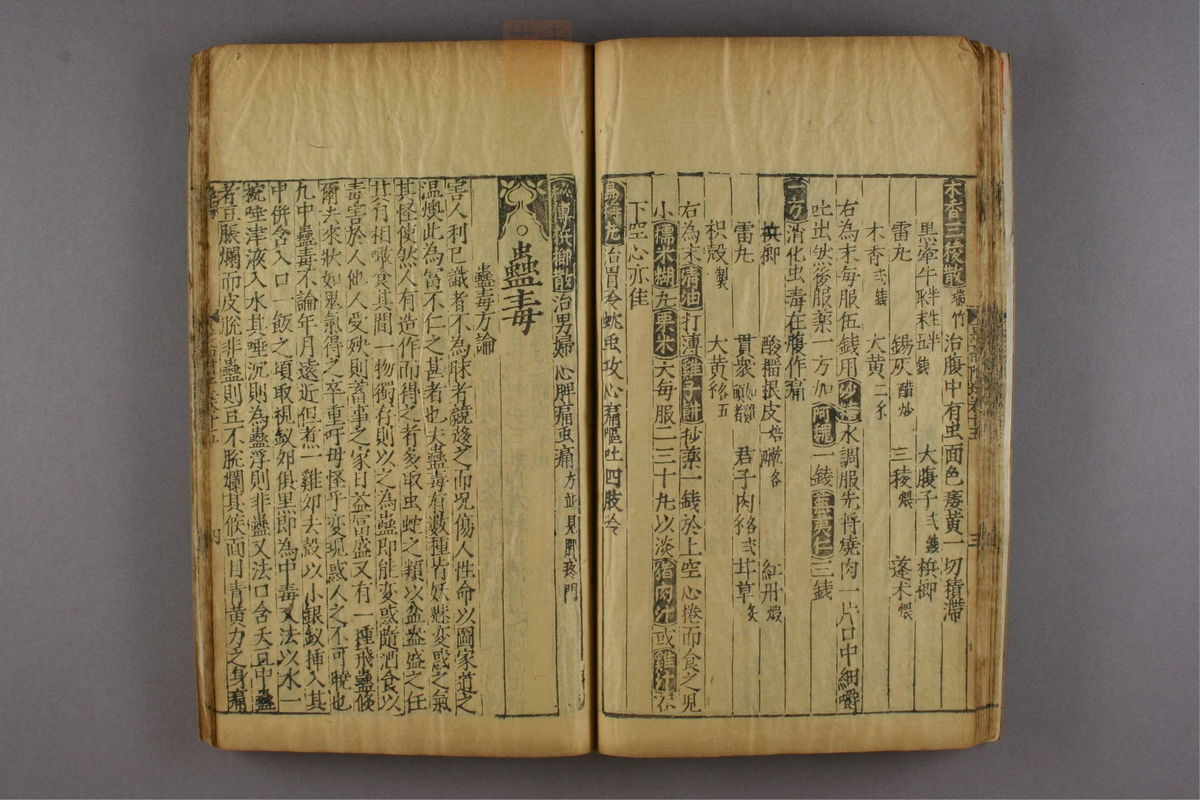 木香三稜散 治腹中有虫面色痿黄一切積滯
黑牽牛半生半取末五錢 大腹子弐錢 梹榔
雷丸 錫灰醋炒 三稜煨 蓬术煨
木香弐錢 大黄二
右為末每服伍錢用砂糖水調服先將燒肉一片口中細嚼
吐出然後服薬一方加阿魏一錢蕪荑仁三錢
一方消化虫毒在腹作痛
梹榔 酸榴根皮 紅丹煆
雷丸 貫衆 君子肉 茸草炙
枳殻製 大黄 五
右為末清油打薄雞子餅抄薬一錢於上空心捲而食之児
小儒米糊丸栗米大每服二三十丸以淡猪肉汁或雞汁
下空心亦佳
烏梅丸治胃冷蚘虫攻心痛嘔吐四肢冷
秘傳梹榔散治男婦心脾痛虫痛方並見脾疼門
蠱毒
蠱毒方論
害人利已識者不為昧者競趍之而呪傷人性命以圖家道之
温燠此為富不仁之甚者也夫蠱毒有數種皆妖魅変惑之氣
其怪使然人有造作而得之者多取虫蛇之類以盆盛之任
其自相噉食其間一物獨有則以之為蠱即能変惑隨酒食以
毒害於人他人受殃則蓄事之家日益冨盛又有一種飛蠱倐
爾去來狀如鬼氣得之卒重吁毋怪乎変現惑人之不可曉也
凡中蠱毒不論年月遠近但煮一雞夘去殻以小銀釵挿入其
中併含入口一飯之頃取視釵夘俱黑即為中毒又法以水一
椀唾津液入水其唾沉則為蠱浮則非蠱又法口含大豆中蠱
者豆脹爛而皮脫非蠱則豆不脫爛其候面目青黄力乏身痛